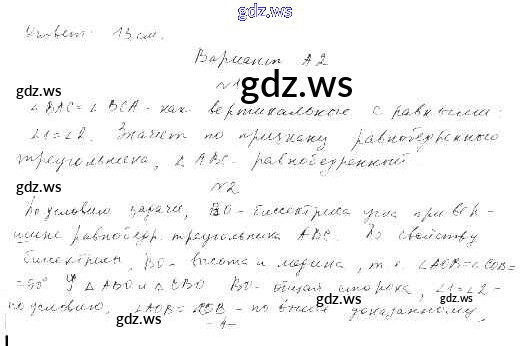 gdz.ws
Ответ: 13 см.
Вариант А2
gdz.ws
№1
gdz.ws
∠BAC=∠BCA - как вертикальные с равными:
∠1=∠2. Значит по признаку равнобедренного
треугольника, △ABC - равнобедренный
gdz.ws
№2
gdz.ws
По условию задачи, BO - биссектриса угла при вер-
шине равнобедр. треугольника ABC. По свойству
биссектрисы, BO - высота и медиана, т.е. ∠AOB=∠COB=
=90° У △ABO и △CBO BO - общая сторона, ∠1=∠2 -
gdz.ws
gdz.ws
по условию, ∠AOB= - по выше доказанному,
-4-
gdz.ws
gdz.ws